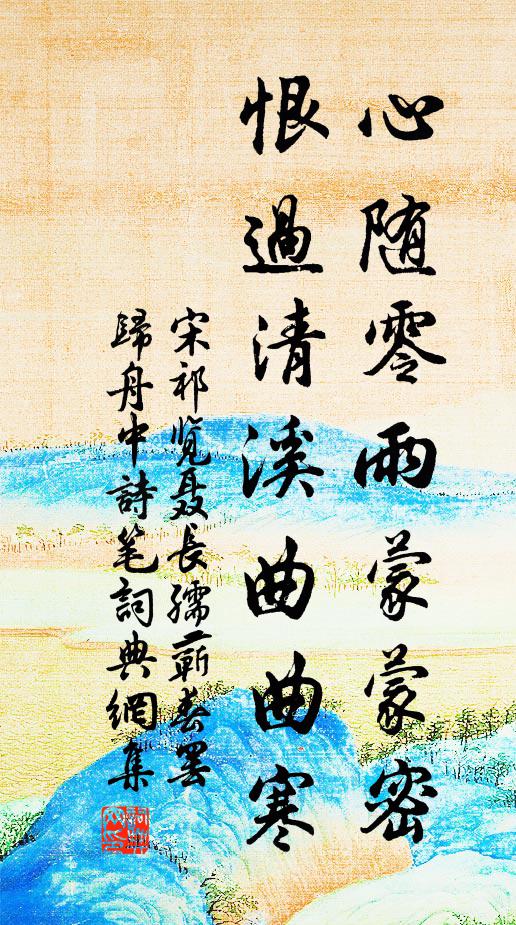 心随零雨蒙蒙密
恨過清溪曲曲寒
宋祁覽聂長孺蘄春罢
歸舟中詩笔詞典網集